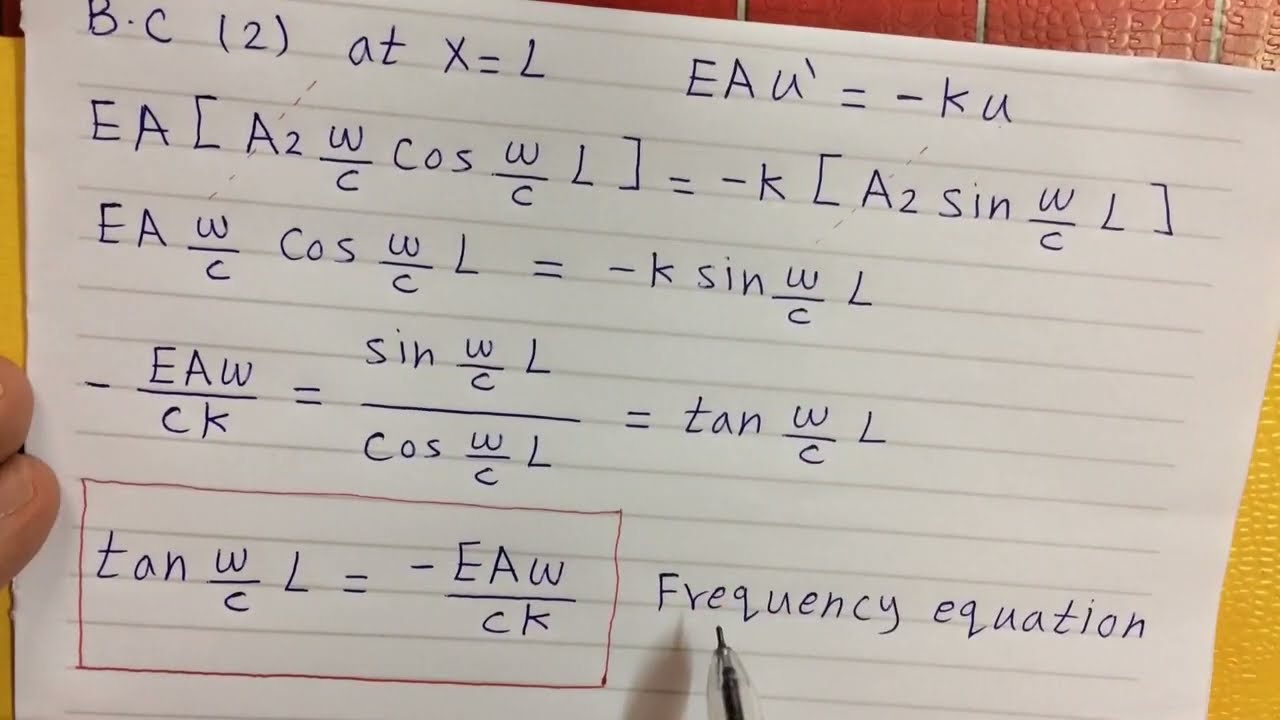 B.C (2) at x=L EAu' = -ku
EA[A2 w/c cos w/c L] = -k[A2 sin w/c L]
EA w/c cos w/c L = -k sin w/c L
- EAw/ck = sin w/c L / cos w/c L = tan w/c L
tan w/c L = -EAw/ck Frequency equation